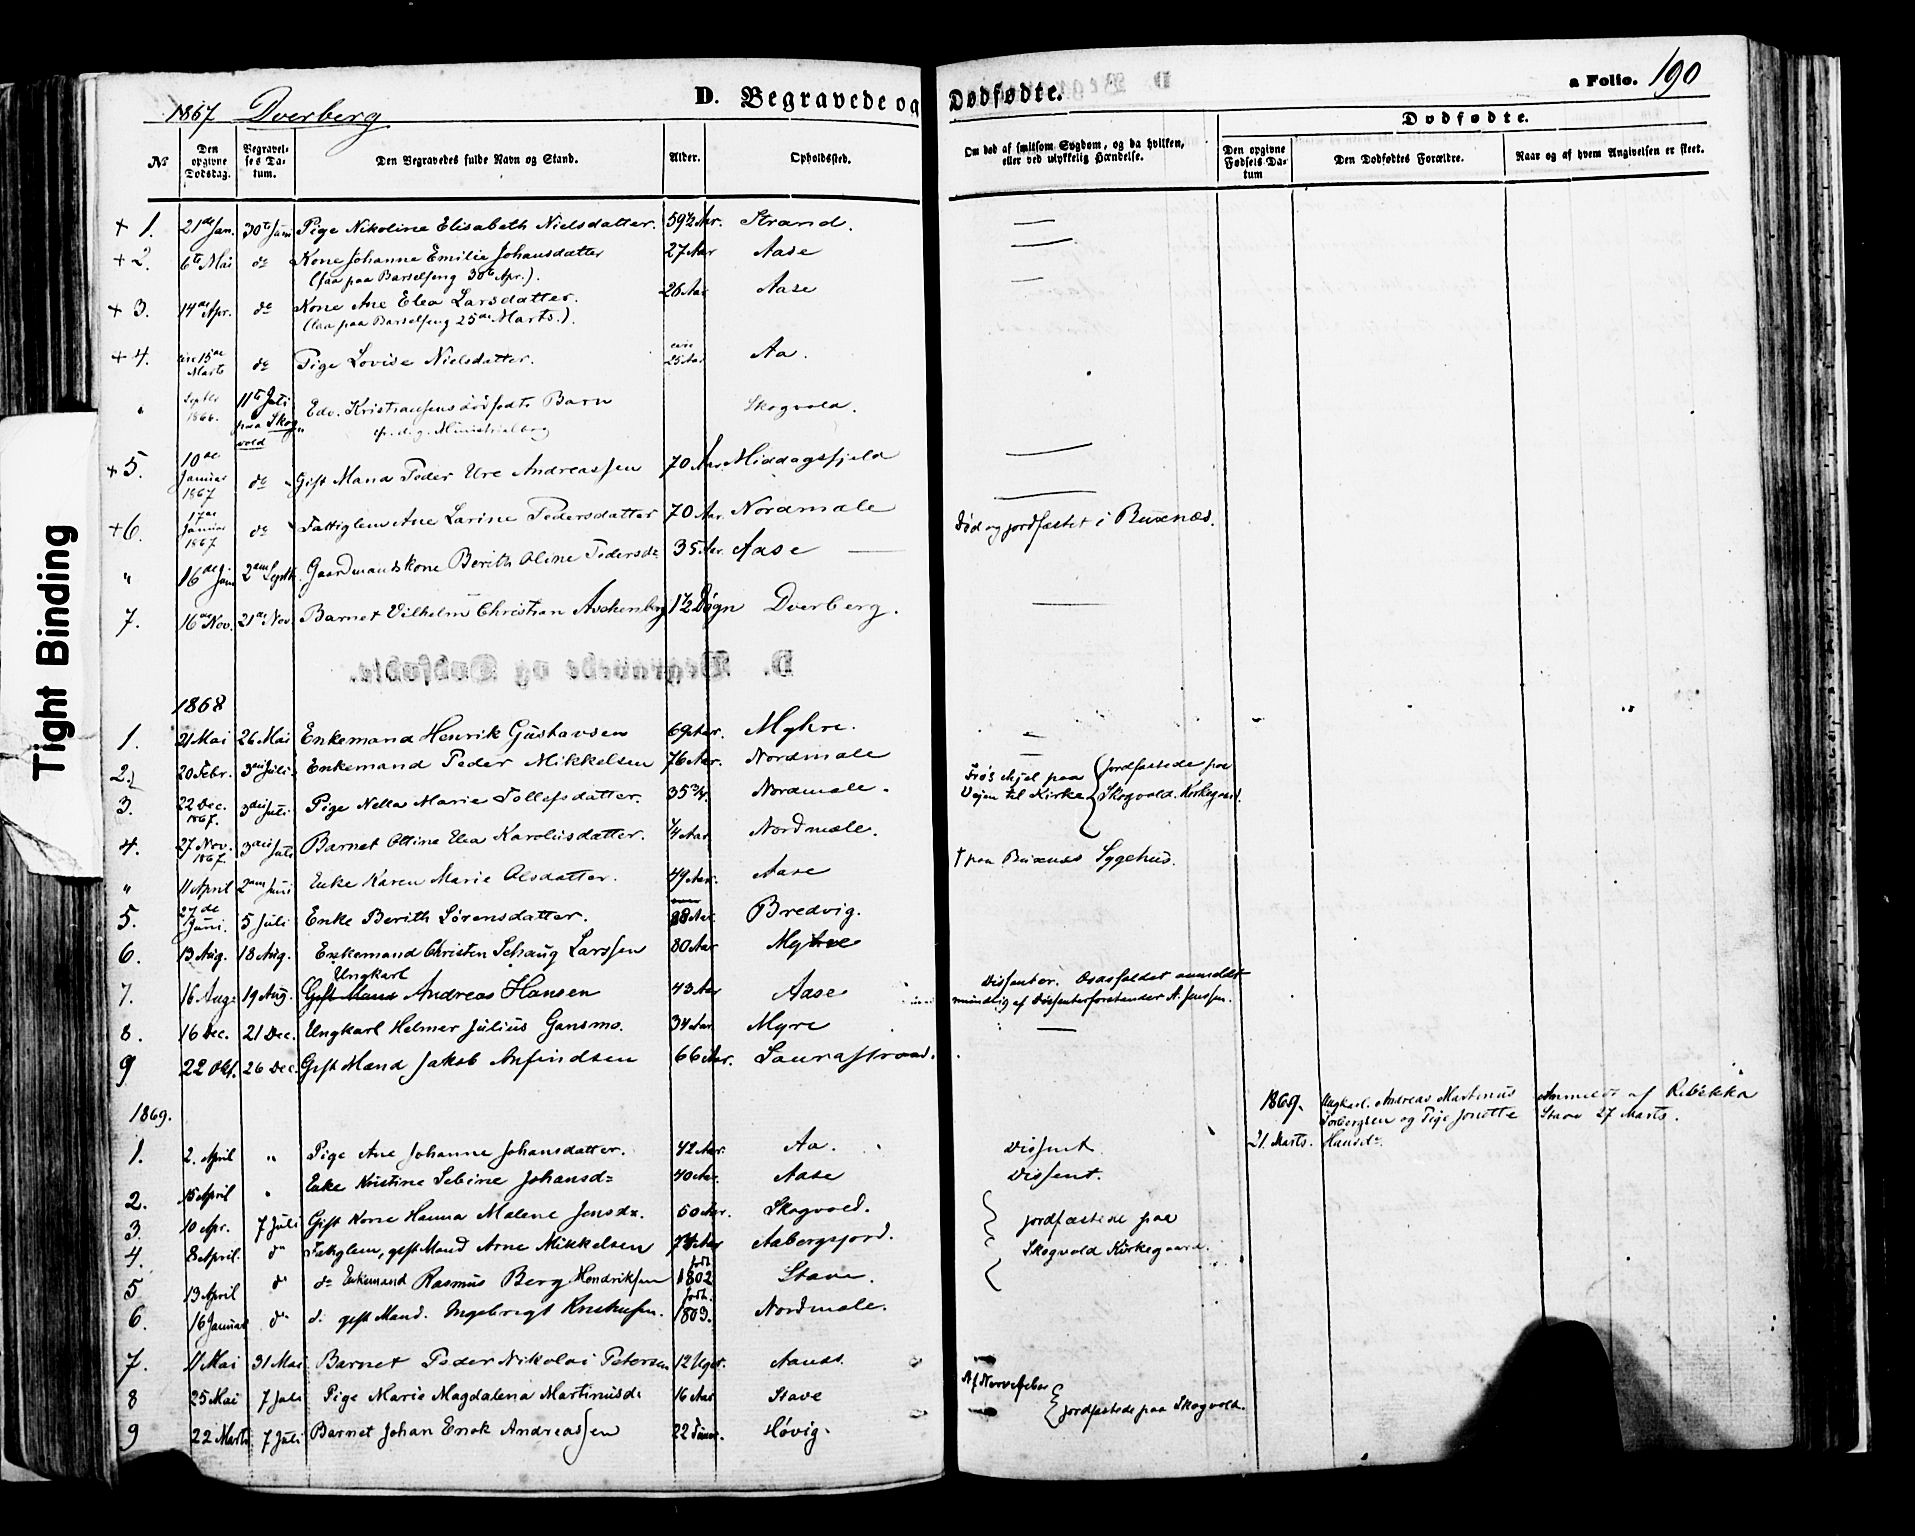 a Folio. 190
1867 Dverberg
D. Begravede og Dødfødte.
Dødfødte.
No
Den opgivne Dødsdag.
Begravelses Datum.
Den Begravedes fulde Navn og Stand.
Alder.
Opholdssted.
Om død af smitsom Sygdom, og da hvilken, eller ved ulykkelig Hændelse.
Den opgivne Fødsels Datum
Den Dødfødtes Forældre.
Naar og af hvem Angivelsen er skeet.
+ 1. 21de Jan. 30te Juni Pige Nikoline Elisabeth Nielsdatter. 59½ Aar. Strand. —
+ 2. 6te Mai do Kone Johanne Emilie Johansdatter 27 Aar Aase —
(laa paa Barselseng 30te Apr.).
+ 3. 14de Apr. do Kone Ane Elea Larsdatter. 26 Aar Aase —
(laa paa Barselseng 25de Marts.).
+ 4. 15de Marts do Pige Lovise Nielsdatter. 25 Aar Aa.
" Septbr 1866. 11te Juli paa Skogvold Edv. Kristiansens dødfødte Barn Skogvold.
+ 5. 10de Januar 1867 do Gift Mand Peder Ure Andreassen 70 Aar Middagsfjeld —
+ 6. 17de Januar 1867 do Fattiglem Ane Larine Pedersdatter 70 Aar. Nordmale —
" 16de Juni 2den Septb. Gaardmandskone Berith Oline Pedersdr 35 Aar. Aase — Død og jordfæstet i Buxnæs.
7. 16de Nov. 21de Nov. Barnet Vilhelm Christian Aschenberg 1½ Døgn Dverberg. —
1868
1. 21 Mai 26 Mai Enkemand Henrik Gustavsen 69 Aar. Myhre. —
2. 20 Febr. 3die Juli. Enkemand Peder Mikkelsen 76 Aar. Nordmale —
3. 22 Dec. 1867. 3die Juli. Pige Nella Marie Tollefsdatter. 35 Nordmale. Frøs ihjel paa Vejen til Kirke { jordfæstede paa Skogvold Kirkegaard.
4. 27 Nov. 1867. 3die Juli Barnet Oltine Elea Karoliusdatter. ¼ Aar. Nordmale.
" 11 April 2den Juni Enke Karen Marie Olsdatter. 49 Aar. Aase † paa Buxnæs Sygehus.
5. 27de Juni. 5 Juli Enke Berith Sørensdatter. 88 Aar Bredvig.
6. 13 Aug. 18 Aug. Enkemand Christen Schaug Larssen 80 Aar Myhre
Ungkarl
7. 16 Aug. 19 Aug. Gift Mand Andreas Hansen 43 Aar Aase Dissenter. Dødsfaldet anmeldt mundtlig af Dissenterforstander A. Jenssen.
8. 16 Dec. 21 Dec. Ungkarl Helmer Julius Gansmo. 34 Aar. Myre —
9 22 Okt. 26 Dec. Gift Mand Jakob Anfindsen 66 Aar. Saurastrand.
1869.
1869. Ungkarl. Andreas Martinus Anmeldt af Rebekka
Torbergsen og Pige Jonette Stave 27 Marts.
21. Marts. Hansdr
1. 2. April " Pige Ane Johanne Johansdatter. 42 Aar. Aa. Dissent.
2. 15 April " Enke Kristine Sebine Johansdr 40 Aar. Aase Dissent.
3. 10 Apr. 7 Juli Gift Kone Hanna Malene Jensdr. 50 Aar. Skogvold. jordfæstede paa
4. 8 April. do Fatiglem, gift Mand Arne Mikkelsen 74 Aar Aabergsjord. Skogvold Kirkegaard.
5 19 April do do Enkemand Rasmus Berg Hendriksen født 1802 Stave.
6. 16 Januar do do gift Mand. Ingebrigt Knudsen. født. 1803. Nordmale.
7. 11 Mai 31 Mai Barnet Peder Nikolai Petersen 12 Uger. Aanes.
8 25 Mai 7 Juli Pige Marie Magdalena Martinusdr 16 Aar Stave Af Nervefeber
9 22 Marts 7 Juli Barnet Johan Enok Andreassen 22 Høvig. jordfæstede paa Skogvold.
Tight Binding